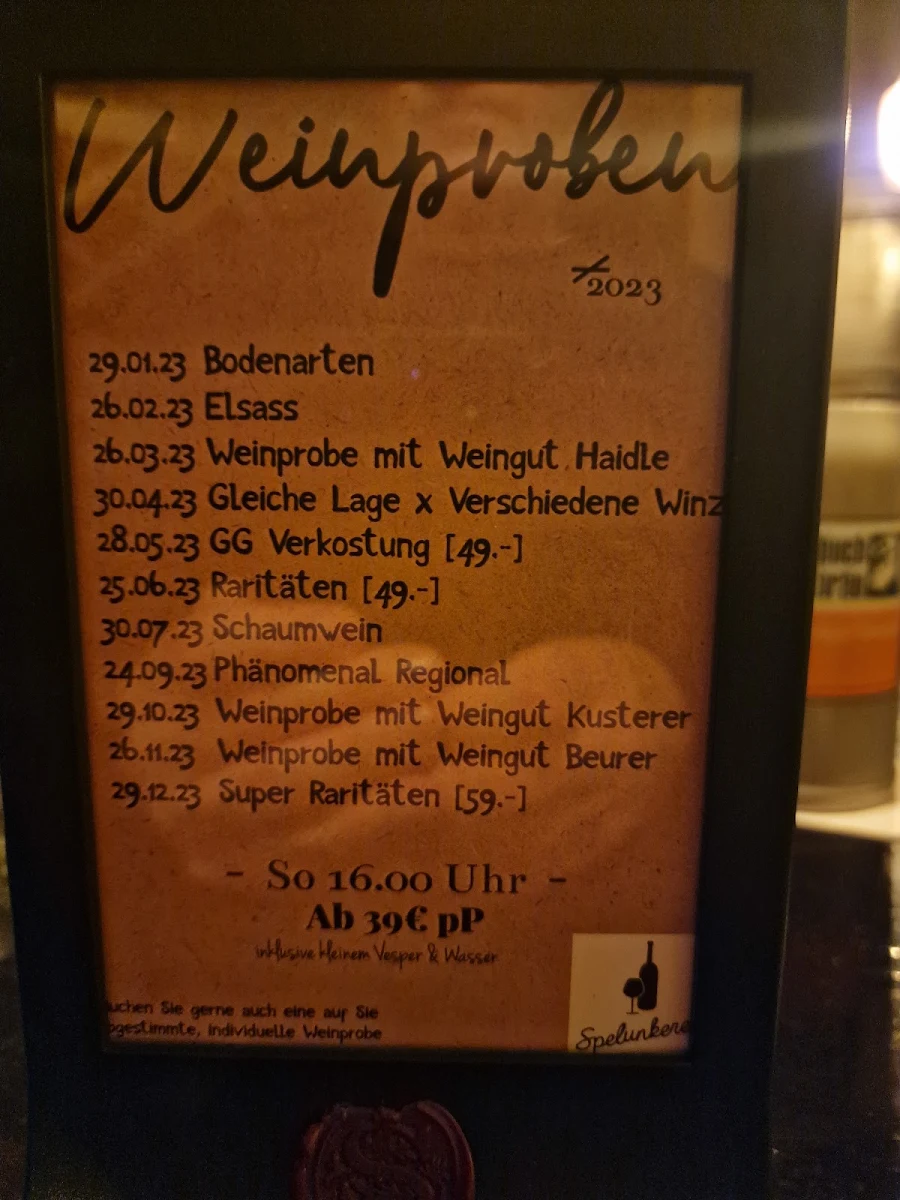 Weinproben
2023
29.01.23 Bodenarten
26.02.23 Elsass
26.03.23 Weinprobe mit Weingut Haidle
30.04.23 Gleiche Lage x Verschiedene Winz
28.05.23 GG Verkostung [49.-]
25.06.23 Raritäten [49.-]
30.07.23 Schaumwein
24.09.23 Phänomenal Regional
29.10.23 Weinprobe mit Weingut Kusterer
26.11.23 Weinprobe mit Weingut Beurer
29.12.23 Super Raritäten [59.-]
- So 16.00 Uhr -
Ab 39€ pP
inklusive kleinem Vesper & Wasser
uchen Sie gerne auch eine auf Sie
bgestimmte, individuelle Weinprobe
Spelunkere